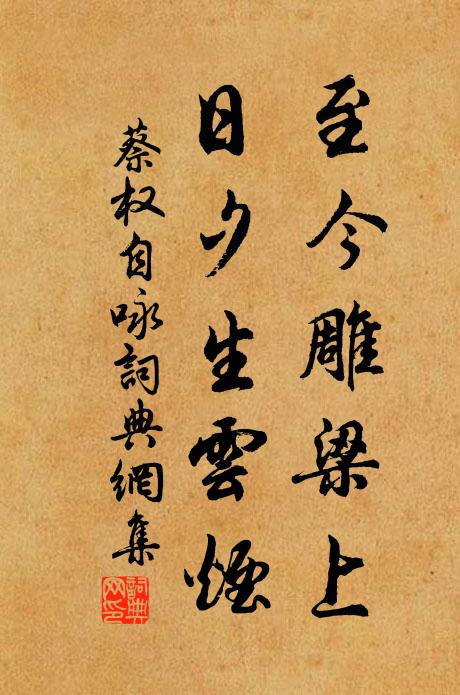 至今雕梁上
日夕生雲煙
蔡权自咏詞典網集
詞典网印